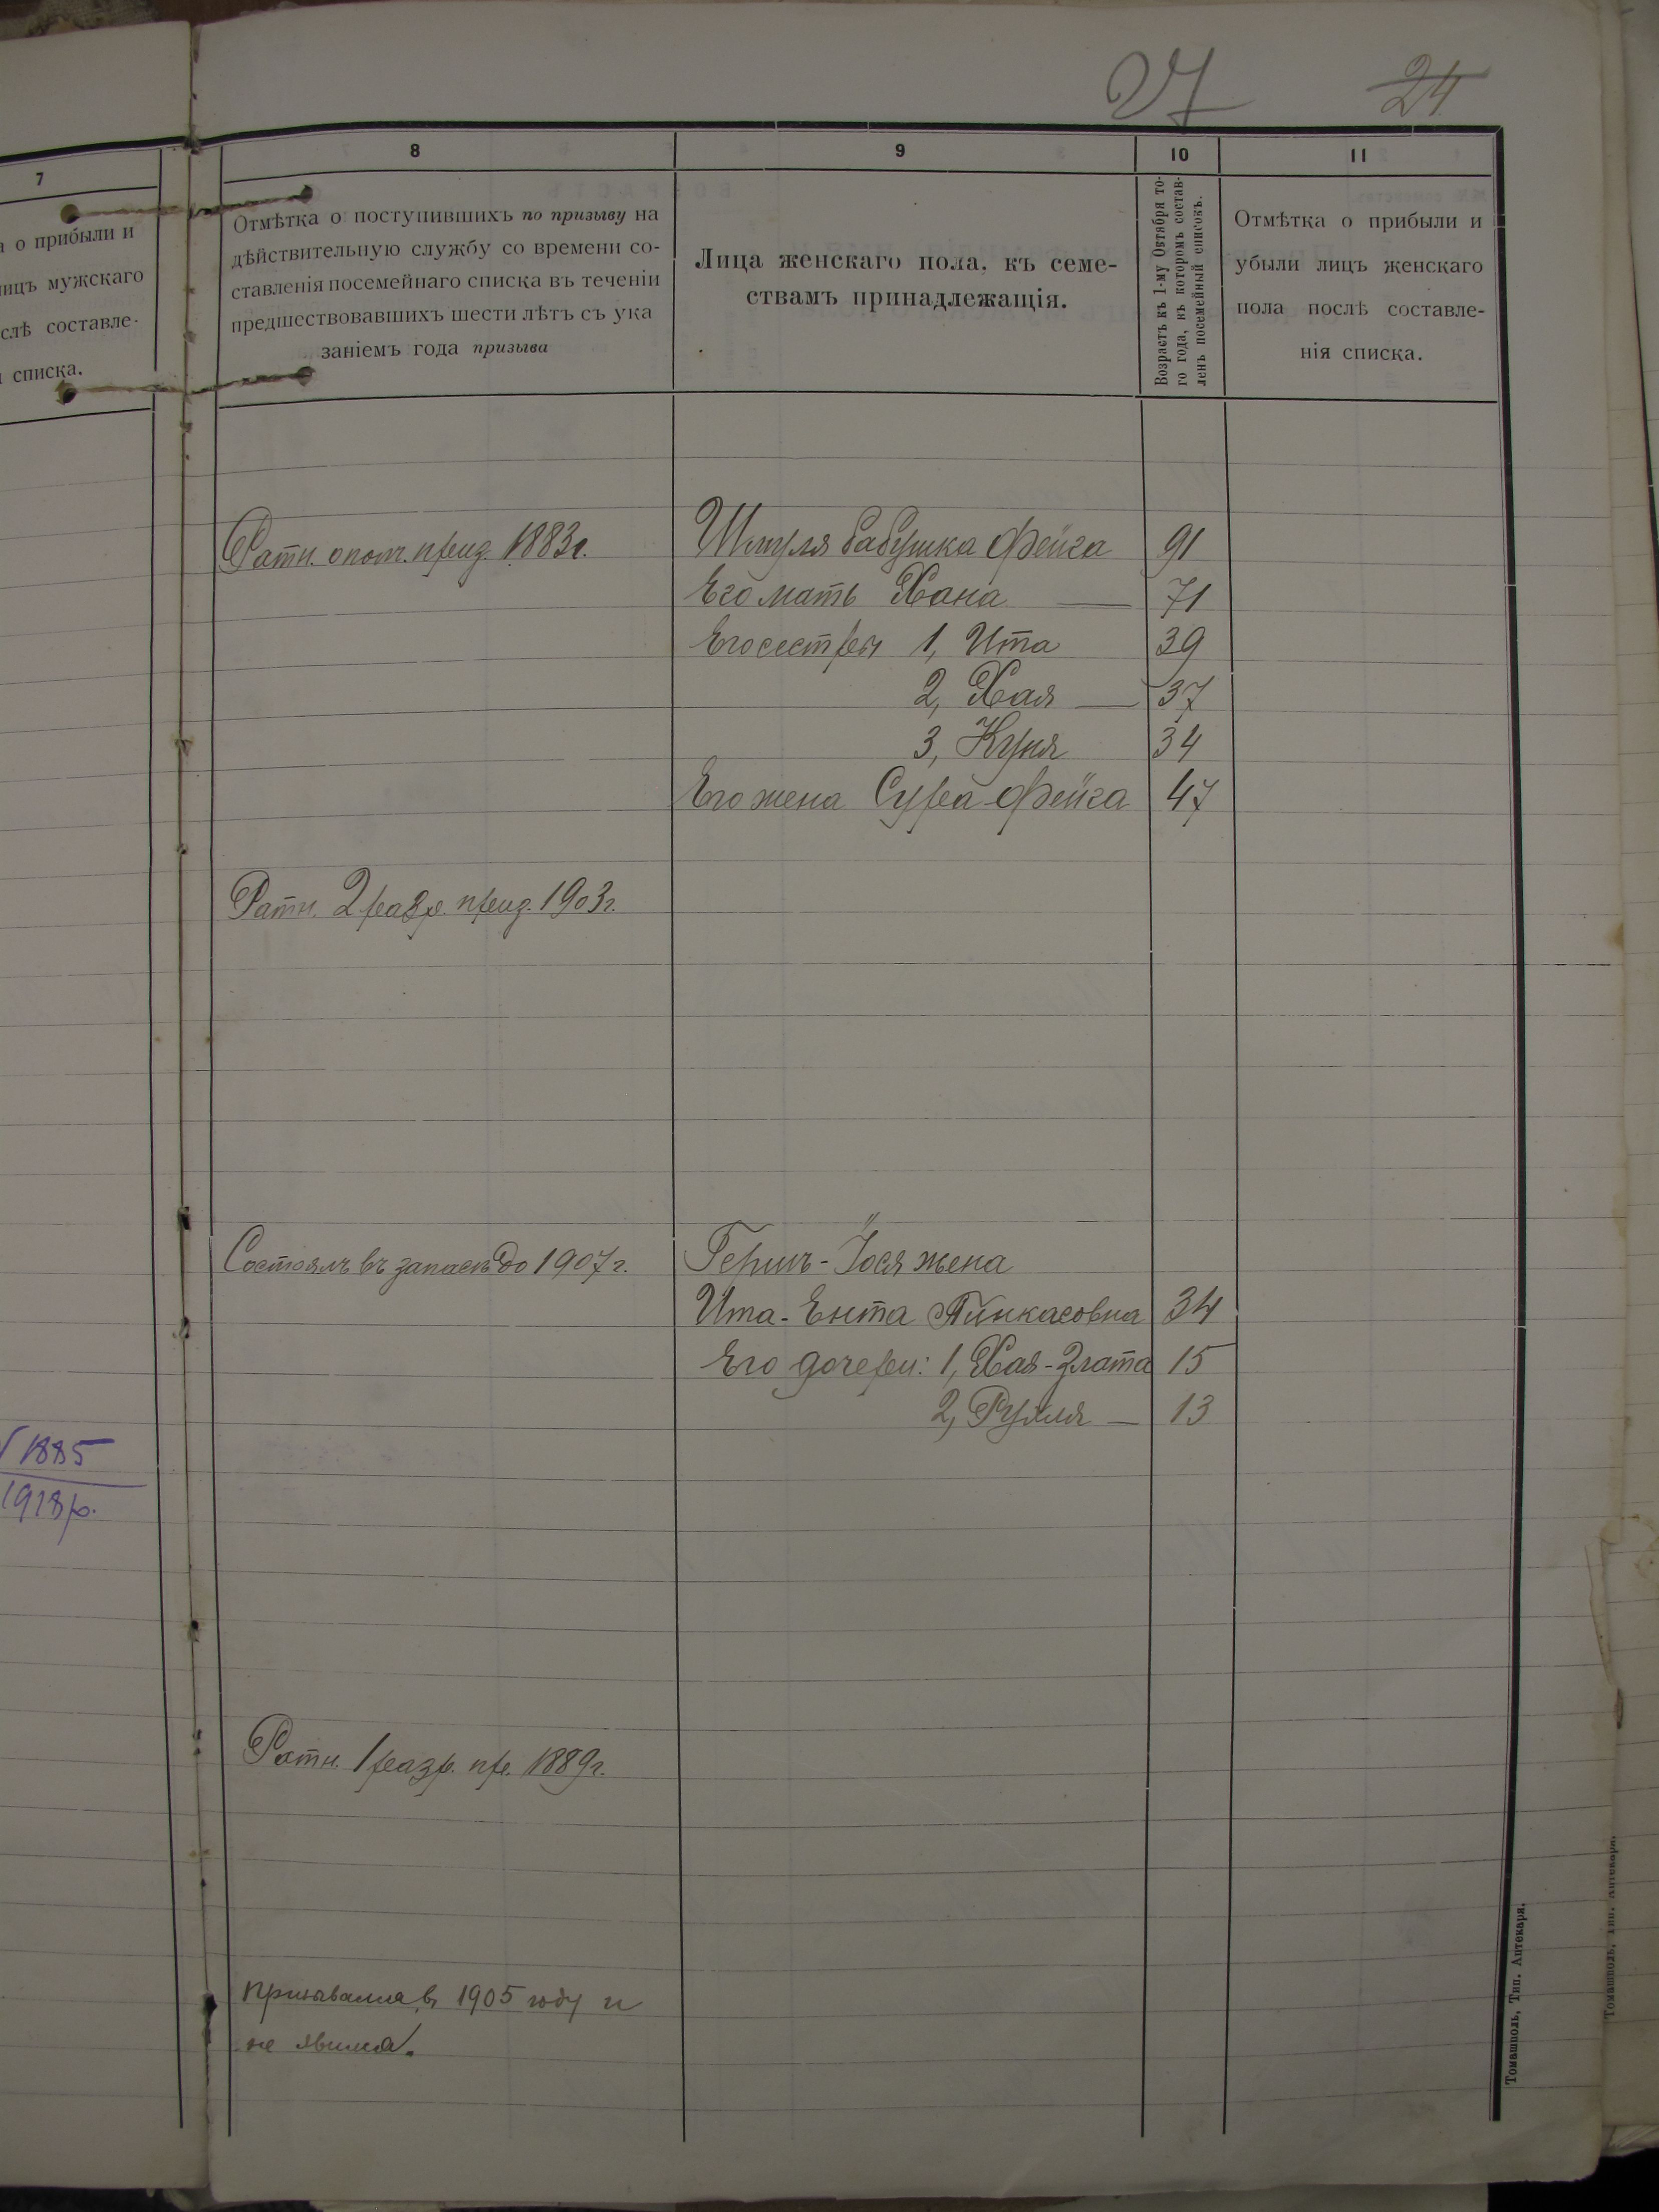 27 24
7
8
9
10
11
а о прибыли и
лицъ мужскаго
слѣ составле-
я списка.
Отмѣтка о поступившихъ по призыву на
дѣйствительную службу со времени со-
ставленія посемейнаго списка въ теченіи
предшествовавшихъ шести лѣтъ съ ука
заніемъ года призыва
Лица женскаго пола, къ семе-
ствамъ принадлежащія.
Возрастъ къ 1-му Октября то-
го года, въ которомъ состав-
ленъ посемейный списокъ.
Отмѣтка о прибыли и
убыли лицъ женскаго
пола послѣ составле-
нія списка.
Ратн. ополч. приз. 1883г.
Шмуля бабушка Фейга 91
Его мать Хана — 71
Его сестры 1, Ита 39
2, Хая — 37
3, Куня 34
Его жена Сура-Фейга 47
Ратн. 2 разр. приз. 1903г.
Состоялъ въ запасѣ до 1907г.
Гершъ-Іося жена
Ита-Ента Пинкасовна 34
Его дочери: 1, Хая-Злата 15
2, Рухля — 13
1885
1918р.
Ратн. 1 разр. пр. 1889г.
призывался въ 1905 году и
не явился.
Томашполь, Тип. Аптекаря.
Томашполь, Тип. Аптекаря.